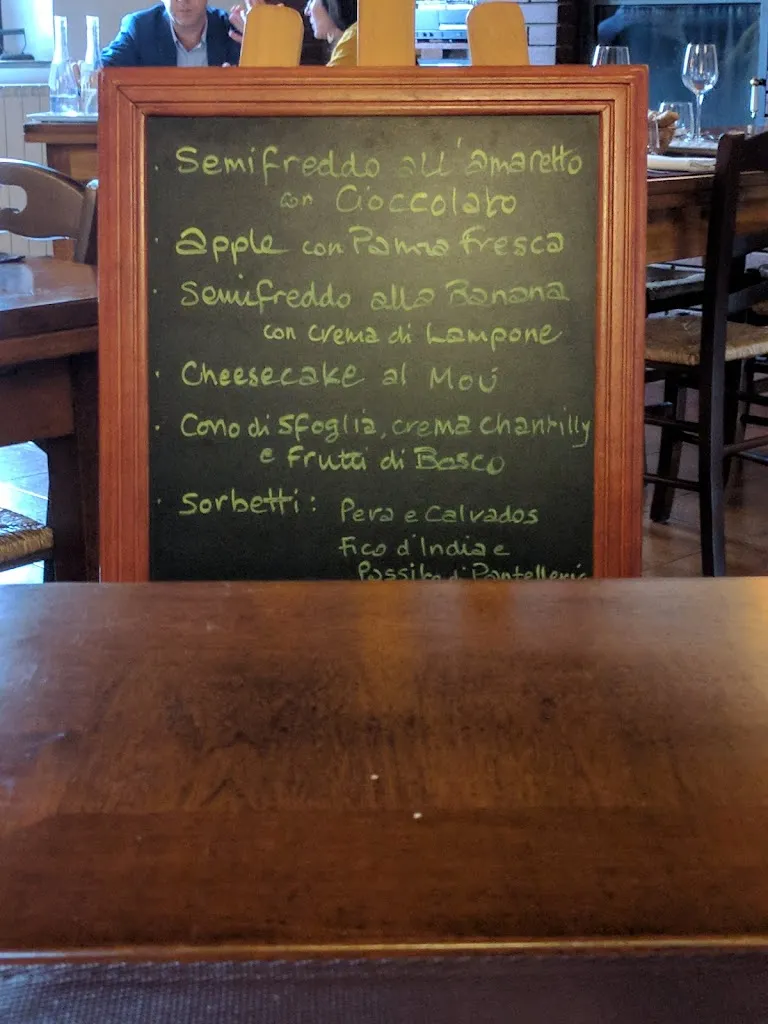 · Semifreddo all'amaretto
con Cioccolato
· apple con Panna fresca
· Semifreddo alla Banana
con crema di Lampone
· Cheesecake al Moú
· Cono di sfoglia, crema chantilly
e frutti di Bosco
· Sorbetti: Pera e Calvados
Fico d'India e
Passito di Pantelleria